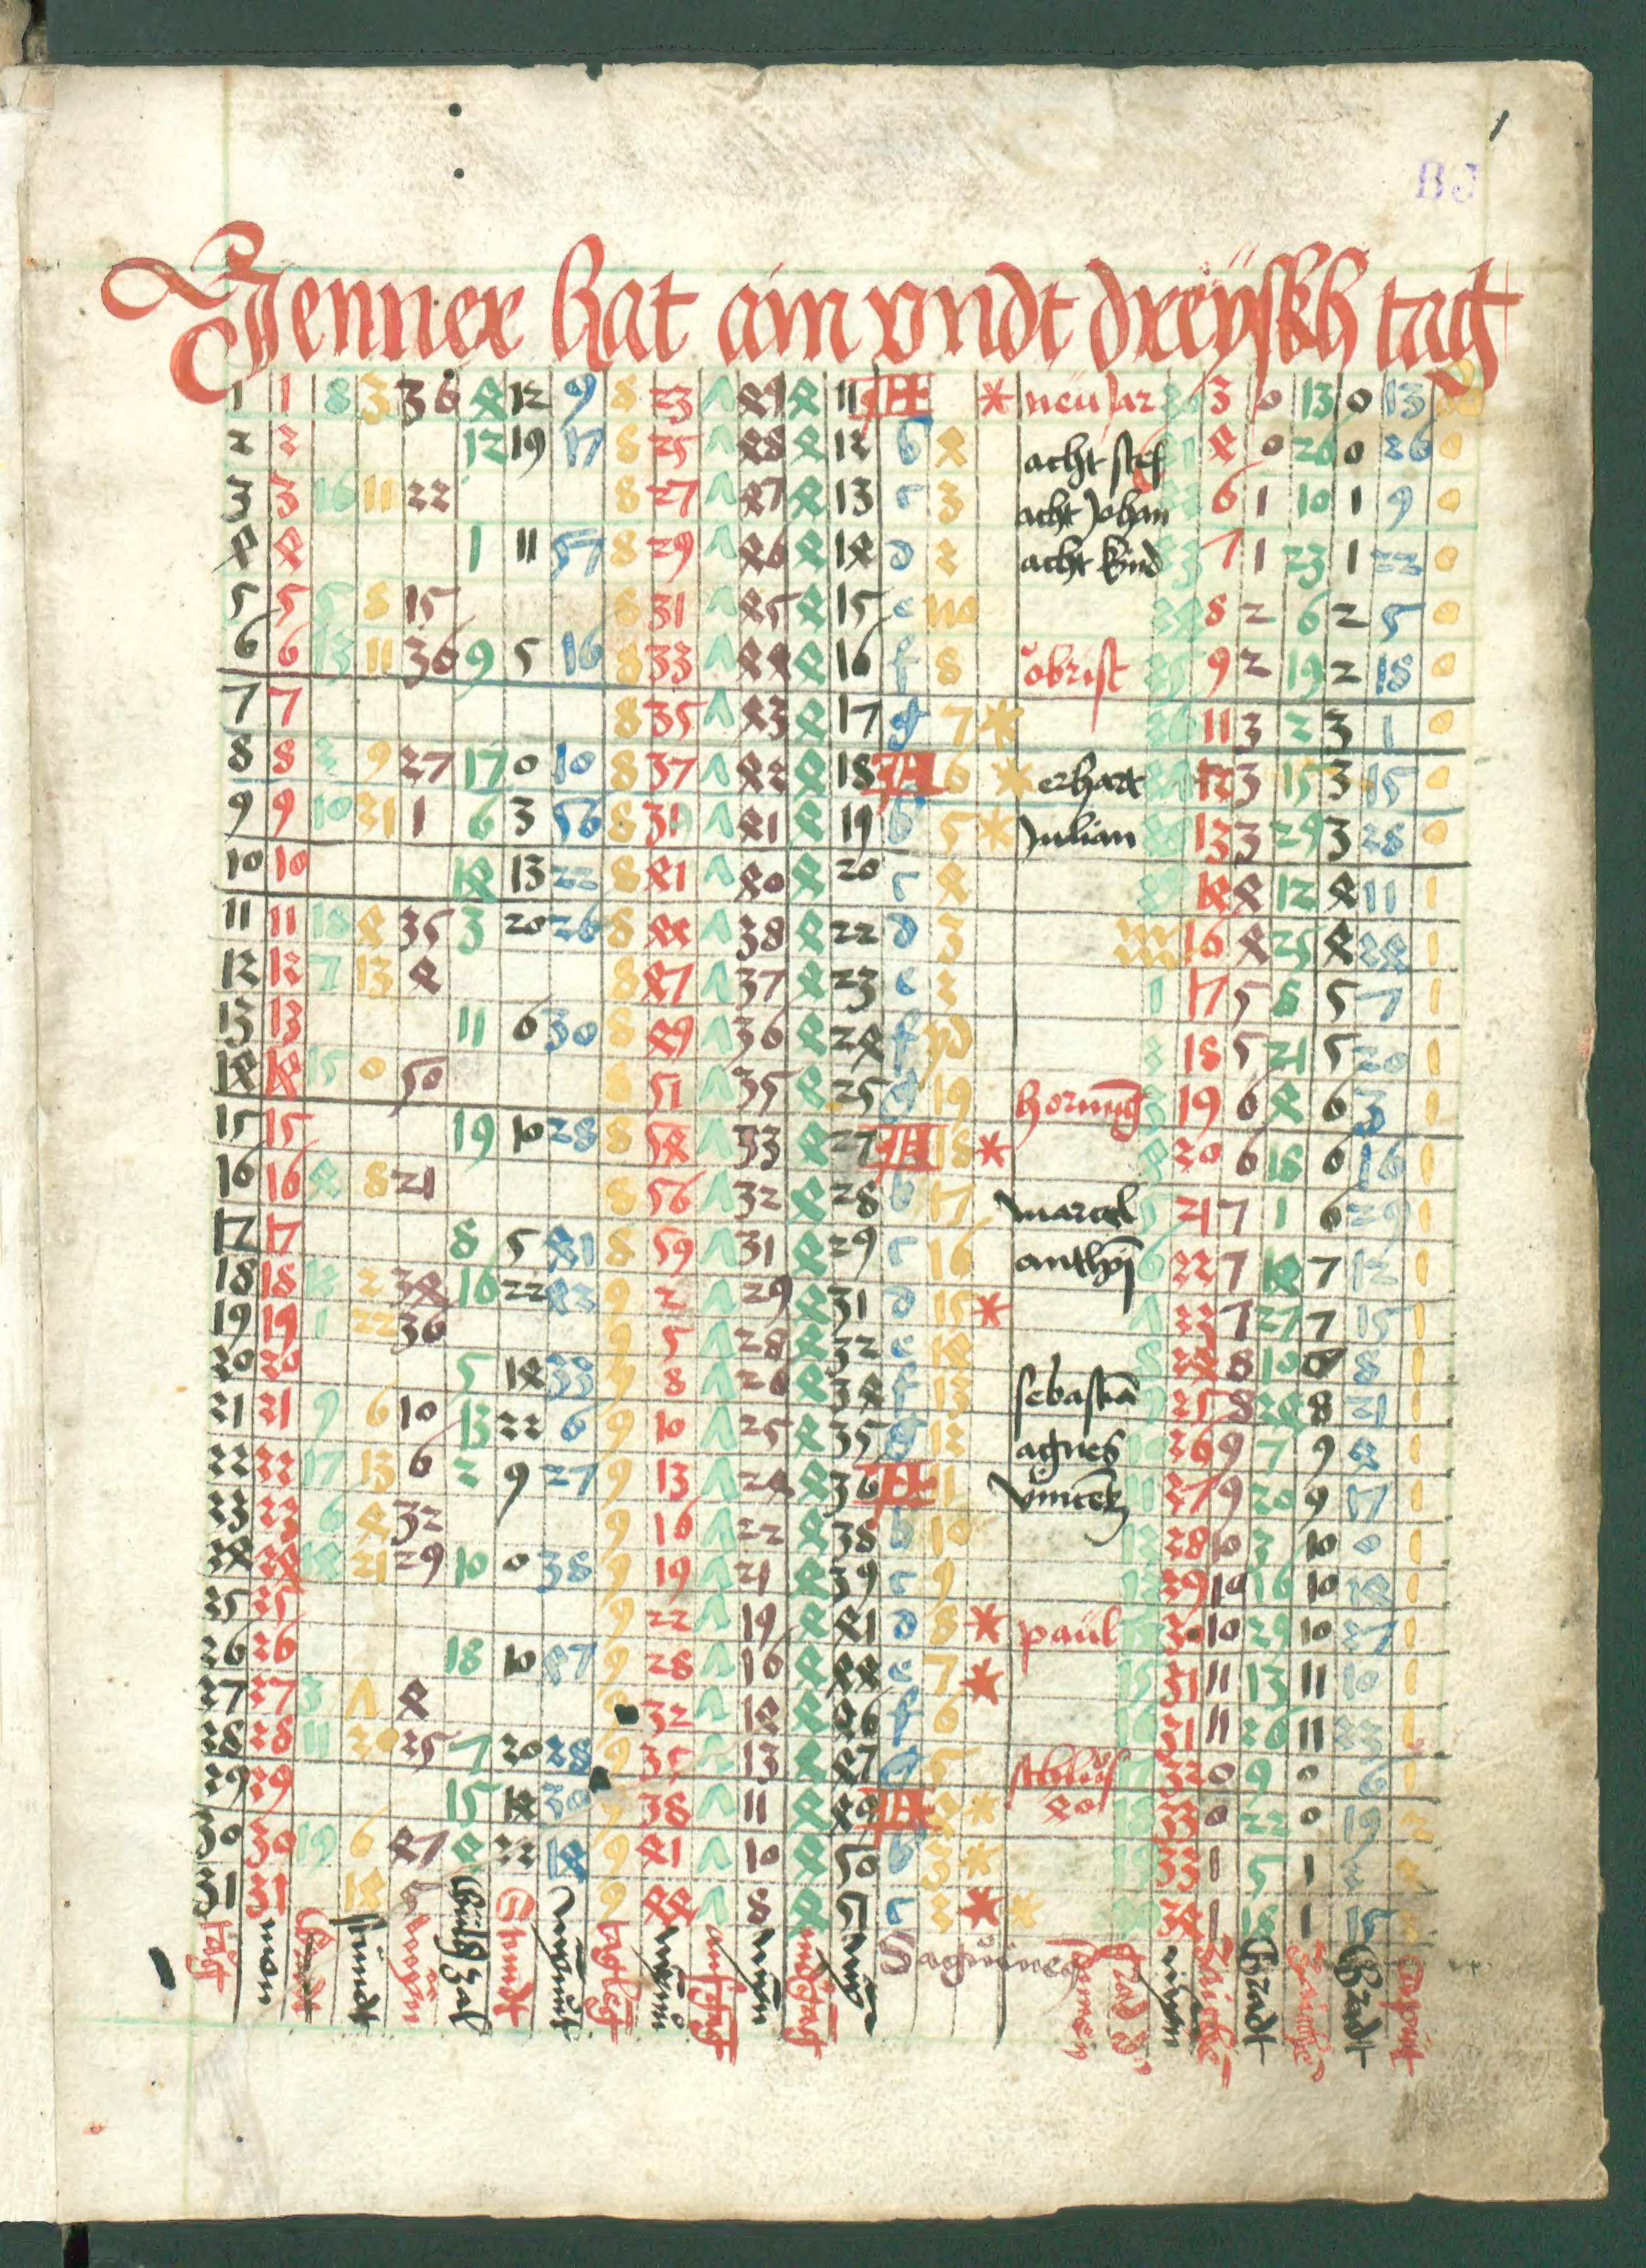 Jenner hat ain vndt dreÿskh tag
1 1 8 3 36 4 12 9 8 23 7 49 4 11 A * neü Jar 3 0 13 0 13 0
2 2 12 19 17 8 25 7 48 4 12 b 4 acht stef 31 4 0 26 0 26 0
3 3 16 11 22 8 27 7 47 4 13 c 3 acht Johan 32 6 1 10 1 9 0
4 4 1 11 57 8 29 7 46 4 14 d 2 acht kind 33 7 1 23 1 22 0
5 5 5 8 15 8 31 7 45 4 15 e 34 8 2 6 2 5 0
6 6 13 11 36 9 5 16 8 33 7 44 4 16 f 8 obrist 35 9 2 19 2 18 0
7 7 8 35 7 43 4 17 g 7 * 36 11 3 2 3 1 0
8 8 2 9 27 17 0 10 8 37 7 42 4 18 A 6 * erhart 12 3 15 3 15 0
9 9 10 21 1 6 3 56 8 39 7 41 4 19 b 5 * Julian 13 3 29 3 28 0
10 10 14 13 22 8 41 7 40 4 20 c 4 14 4 12 4 11 1
11 11 18 4 35 3 20 26 8 44 7 38 4 22 d 3 16 4 25 4 24 1
12 12 7 13 4 8 47 7 37 4 23 e 2 1 17 5 8 5 7 1
13 13 11 6 30 8 49 7 36 4 24 f 2 18 5 21 5 20 1
14 14 15 0 50 8 51 7 35 4 25 g 19 hornūg 3 19 6 4 6 3 1
15 15 19 10 28 8 54 7 33 4 27 A 18 * 4 20 6 18 6 16 1
16 16 4 8 21 8 56 7 32 4 28 b 17 marcel 5 21 7 1 6 29 1
17 17 8 5 41 8 59 7 31 4 29 c 16 anthoj 6 22 7 14 7 12 1
18 18 12 2 34 16 22 43 9 2 7 29 4 31 d 15 * 7 23 7 27 7 15 1
19 19 1 22 36 9 5 7 28 4 32 e 14 8 24 8 10 8 8 1
20 20 5 14 33 9 8 7 26 4 34 f 13 sebastiā 9 25 8 24 8 21 1
21 21 9 6 10 13 22 6 9 10 7 25 4 35 g 12 agnes 10 26 9 7 9 4 1
22 22 17 13 6 2 9 27 9 13 7 24 4 36 A 1 vincētz 11 27 9 20 9 17 1
23 23 6 4 32 9 16 7 22 4 38 b 10 12 28 10 3 10 0 1
24 24 14 21 29 10 0 38 9 19 7 21 4 39 c 9 13 29 10 16 10 14 1
25 25 9 22 7 19 4 41 d 8 * paul 14 30 10 29 10 27 1
26 26 18 10 47 9 28 7 16 4 44 e 7 * 15 31 11 13 11 10 1
27 27 3 7 4 32 7 14 4 46 f 6 16 31 11 26 11 23 1
28 28 11 20 25 7 20 28 9 35 7 13 4 47 g 5 17 32 0 9 0 6 1
29 29 15 14 30 9 38 7 11 4 49 A * 18 33 0 22 0 19 2
30 30 19 6 47 4 22 14 9 41 7 10 4 50 b 3 * 19 33 1 5 1 2
31 31 14 9 44 7 8 4 c * * 34 1 18 1 15
tägt mon stundt gulgzal Stundt Sagŭines gradt gradt
1
BJ